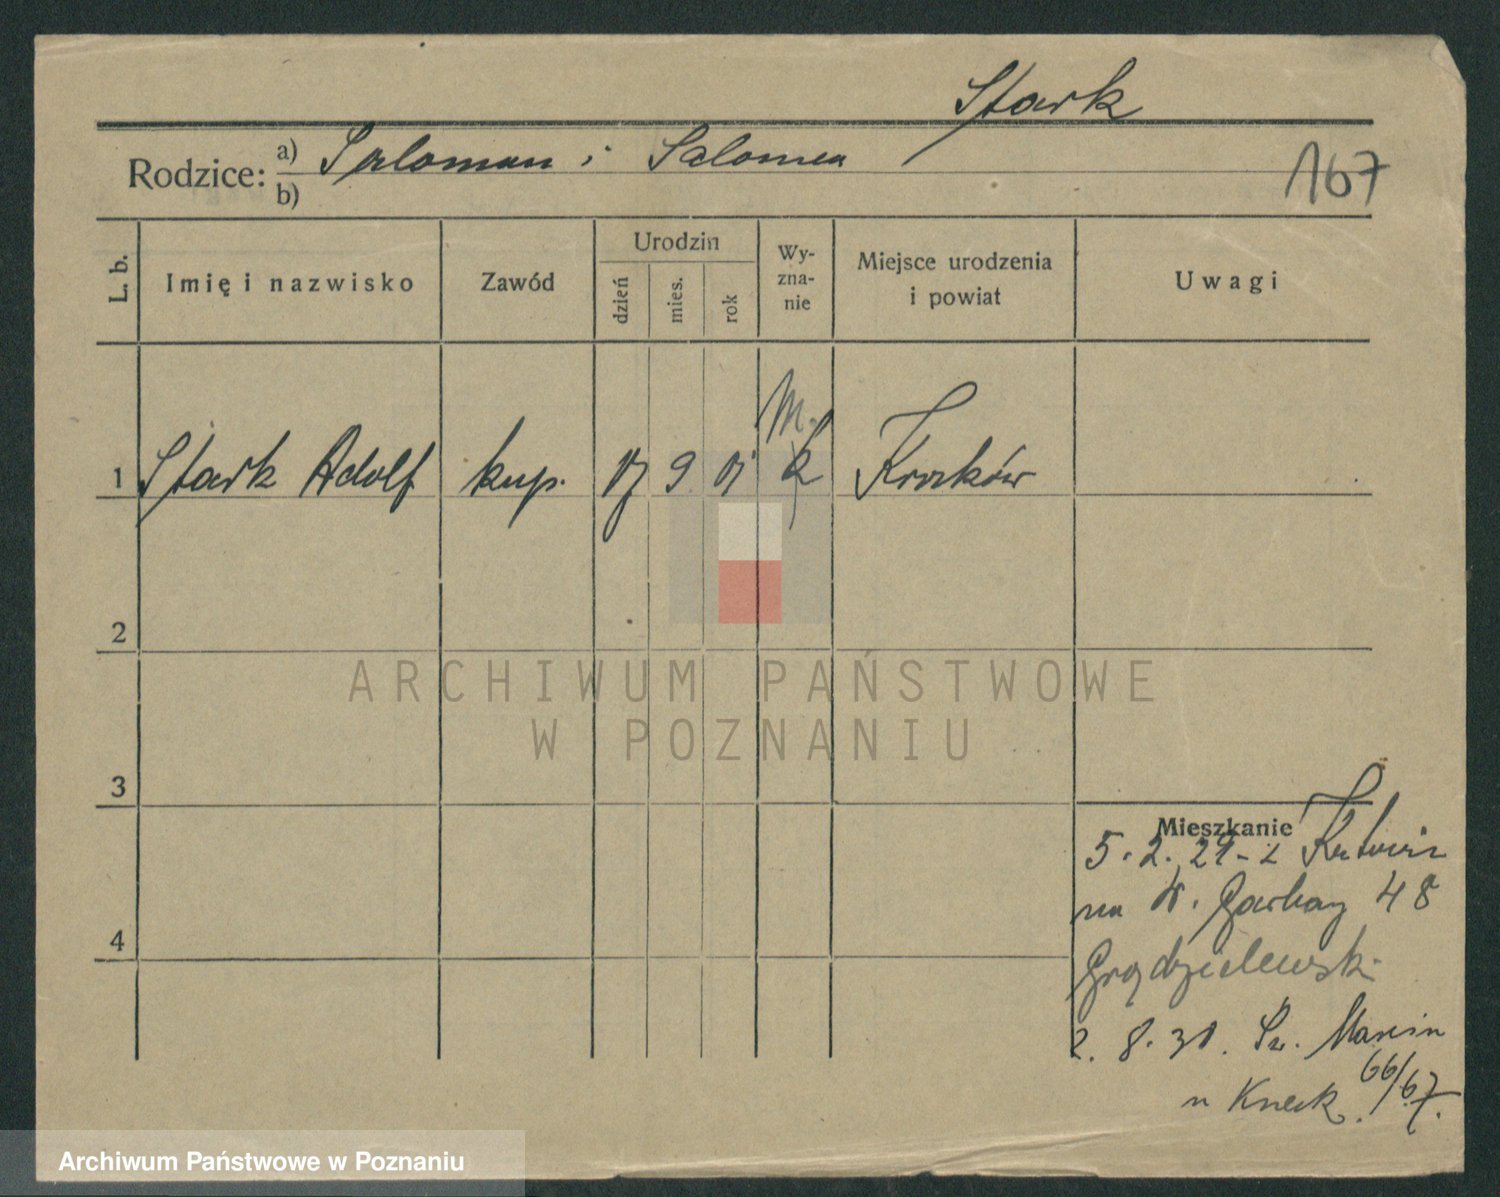 Stark
Rodzice: a) Saloman i Salomea
b)
167
L. b.
Imię i nazwisko
Zawód
Urodzin
dzień
mies.
rok
Wy-
zna-
nie
Miejsce urodzenia
i powiat
Uwagi
M.
1 Stark Adolf kup. 17 9 01 k Kraków
2
3
4
Mieszkanie
5. 2. 29 - z
na W. Garbary 48
2. 8. 30. Św. Marcin
66/67.
u
ARCHIWUM PAŃSTWOWE
W POZNANIU
Archiwum Państwowe w Poznaniu